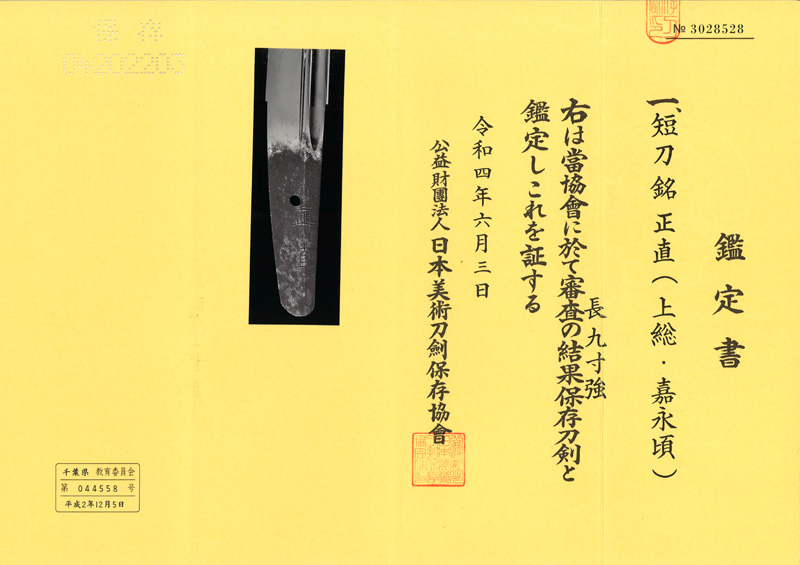 № 3028528
鑑定書
一、短刀銘 正直（上総・嘉永頃）
長九寸強
右は當協會に於て審査の結果保存刀剣と
鑑定しこれを証する
令和四年六月三日
公益財團法人 日本美術刀劍保存協會
保存
04202205
千葉県 教育委員会
第 044558 号
平成2年12月5日